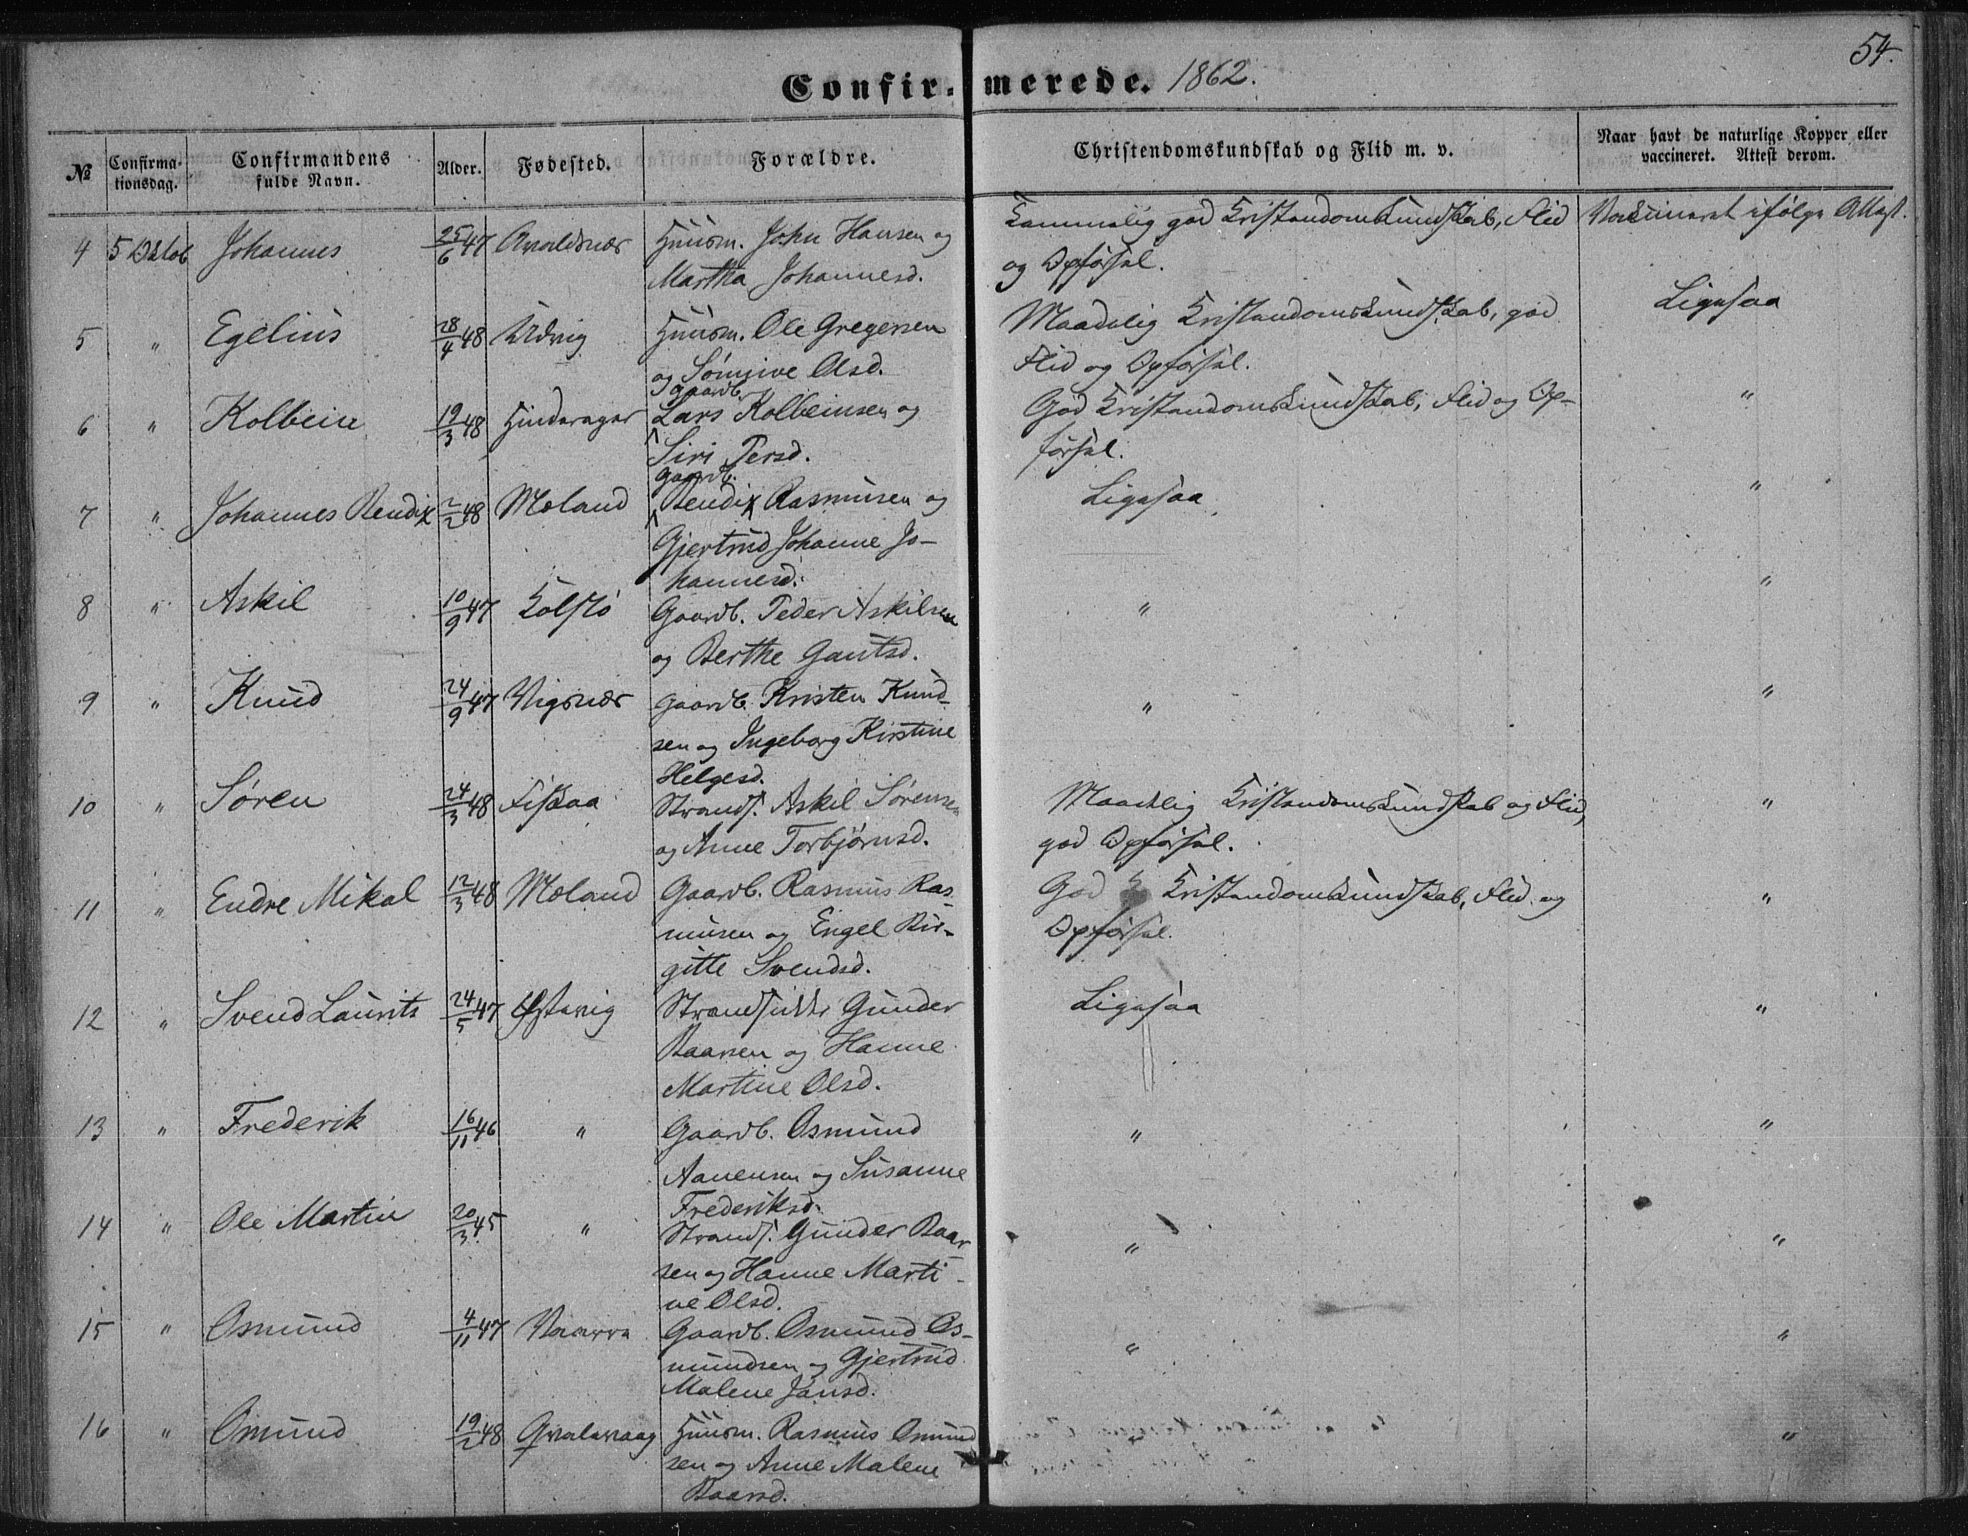 54.
Confirmerede. 1862.
№ Confirmationsdag. Confirmandens fulde Navn. Alder. Fødested. Forældre. Christendomskundskab og Flid m. v. Naar havt de naturlige Kopper eller vaccineret. Attest derom.
4 5 Oktob Johannes 25/6 47 Avaldsnær Huusm. John Hansen og Temmelig god Kristendomskundskab, Flid Vaksineret ifølge Attest.
Martha Johannesd. og Opførsel.
5 " Egelius 28/4 48 Udvig Huusm. Ole Gregersen Maadelig Kristendomskundskab, god Ligesaa
og Sønnive Olsd. Flid og Opførsel.
6 " Kolbein 19/3 48 Hinderager Gaardb. Lars Kolbeinsen og God Kristendomskundskab, Flid og Op- "
Siri Persd. førsel.
7 " Johannes Bendix 2/2 48 Moland Gaardb. Bendix Rasmusen og Ligesaa "
Gjertrud Johanne Jo-
hannesd.
8 " Askil 10/9 47 Kolstø Gaardb. Peder Askilsen " "
og Berthe Gautsd.
9 " Knud 24/9 47 Vigsnær Gaardb. Kristen Knud- " "
sen og Ingeborg Kirstine
Helgesd.
10 " Søren 24/3 48 Fiskaa Strands. Askil Sørensen Maadelig Kristendomskundskab og Flid, "
og Anne Torbjørnsd. god Opførsel.
11 " Endre Mikal 12/3 48 Moland Gaardb. Rasmus Ras- God Kristendomskundskab, Flid og "
musen og Engel Bir- Opførsel.
gitte Svendsd.
12 " Svend Laurits 24/5 47 Østevig Strandsidder Gunder Ligesaa "
Baarsen og Hanne
Martine Olsd.
13 " Frederik 16/11 46 " Gaardb. Osmund " "
Aanensen og Susanne
Frederiksd.
14 " Ole Martin 20/3 45 " Strands. Gunder Baar " "
sen og Hanne Marti-
ne Olsd.
15 " Osmund 4/11 47 Vaarra Gaardb. Osmund Os- " "
mundsen og Gjertrud
Malene Jansd.
16 " Osmund 19/2 48 Qvalavaag Huusm. Rasmus Osmund " "
sen og Anne Malene
Baarsd.